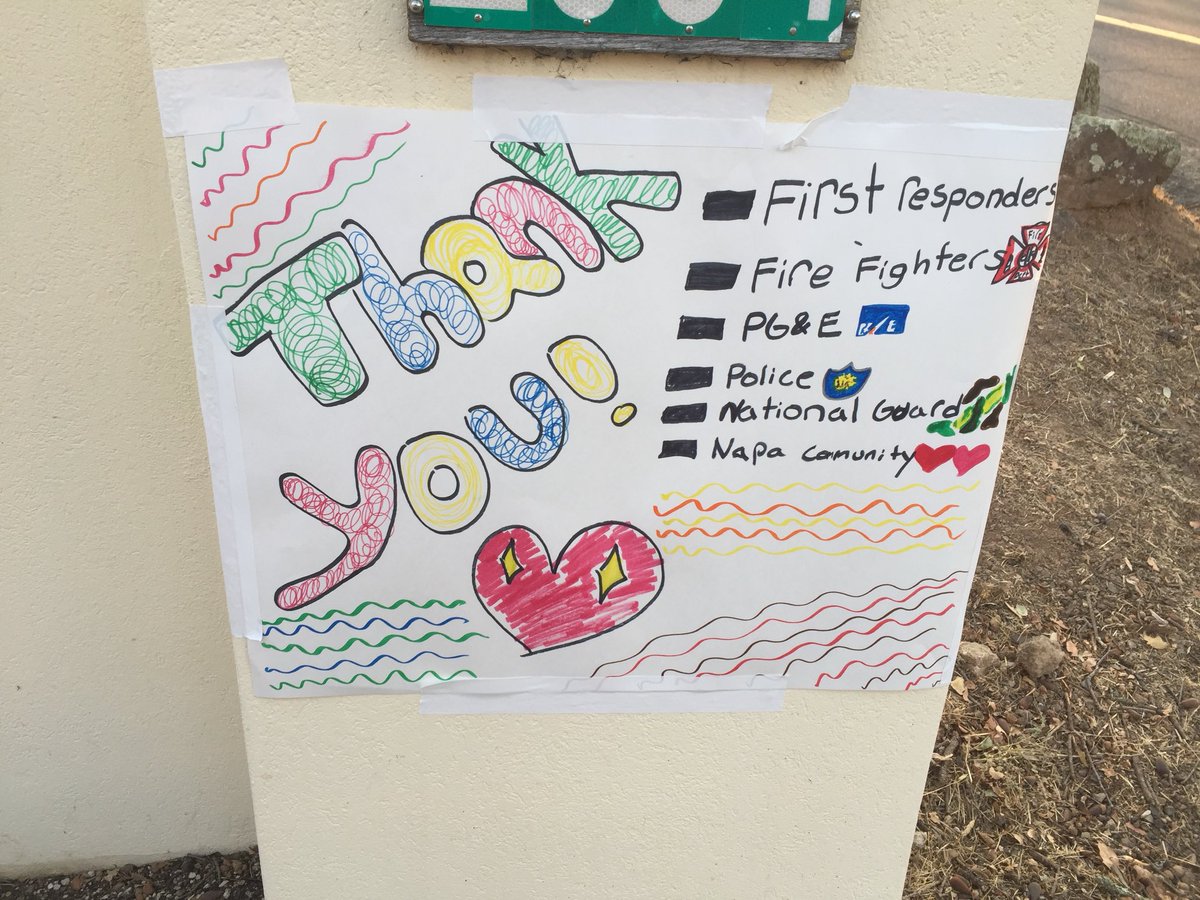 Thank
you!
First responders
Fire Fighters
PG&E
Police
National Guard
Napa Comunity